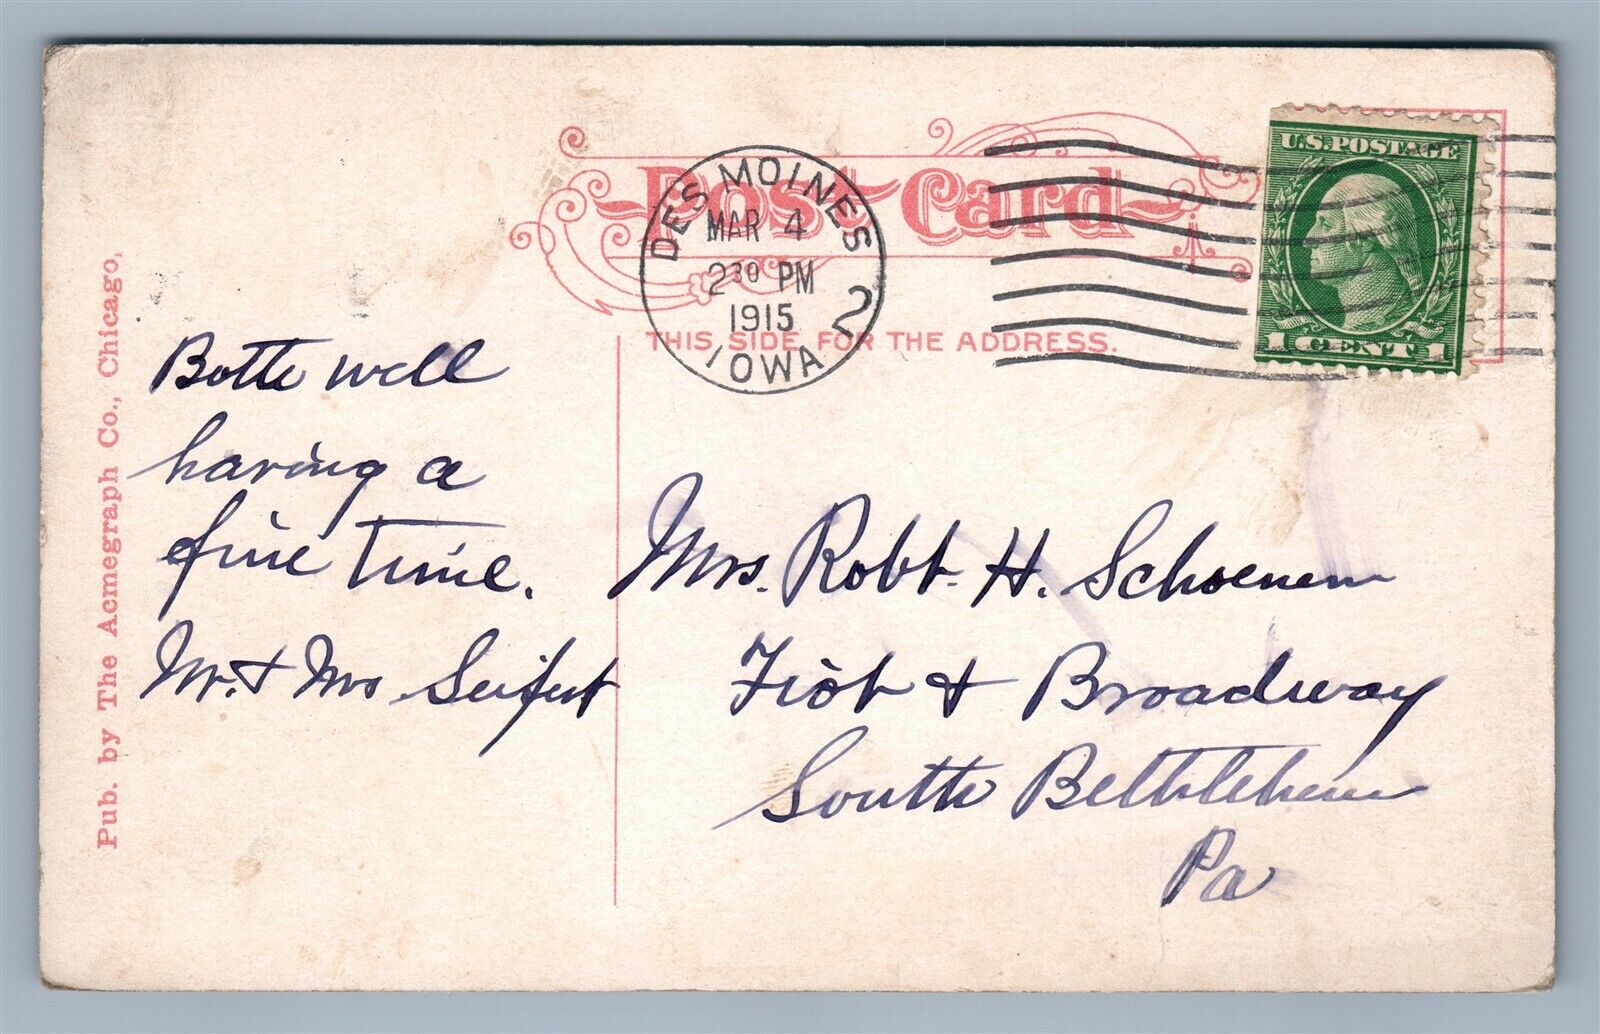 Post Card
DES MOINES
MAR 4
2 30 PM
1915
2
IOWA
U.S. POSTAGE
1 CENT 1
THIS SIDE FOR THE ADDRESS.
Pub. by The Acmegraph Co., Chicago.
Both well
having a
fine time.
Mr. & Mrs Seifert
Mrs. Robt. H. Schoenen
& Broadway
South Bethlehem
Pa